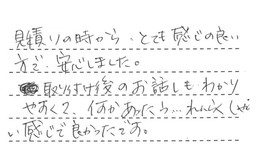 見積りの時から、とても感じの良い
方で、安心しました。
取り付け後のお話しもわかり
やすくて、何かあったら…れんらくしやす
い感じで良かったです。